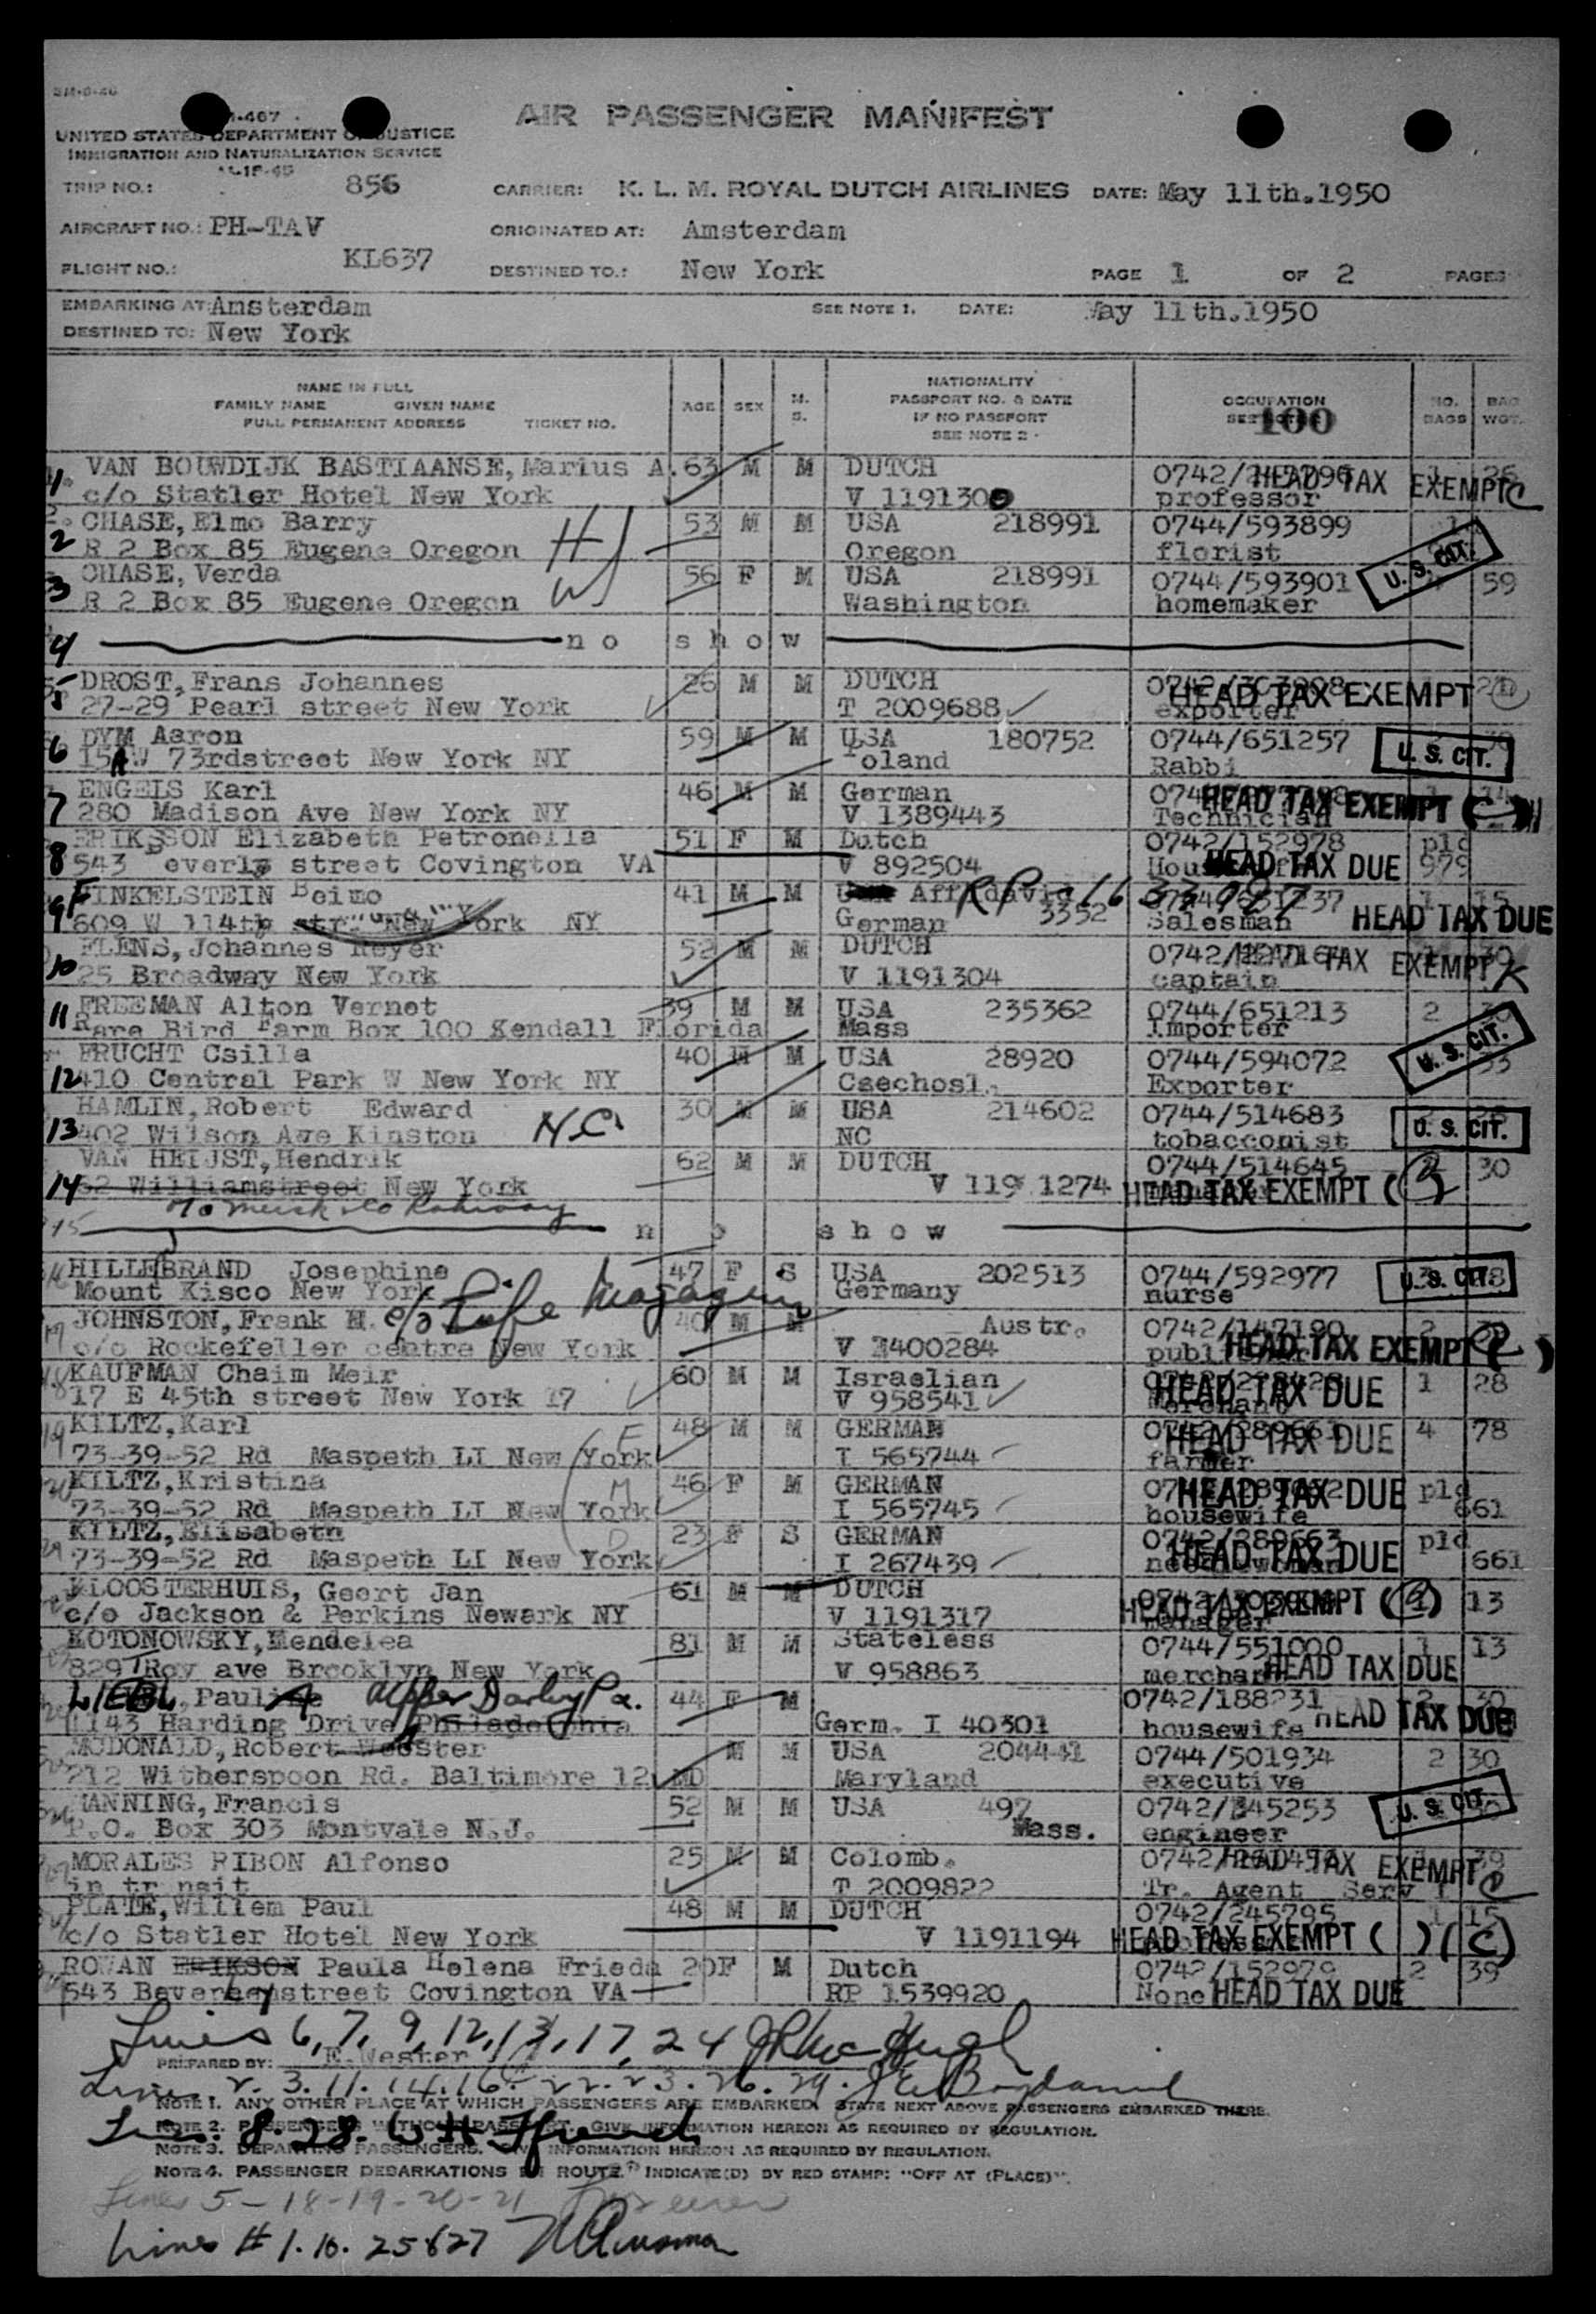 SM-8-46
-467
UNITED STATES DEPARTMENT OF JUSTICE
IMMIGRATION AND NATURALIZATION SERVICE
AIR PASSENGER MANIFEST
TRIP NO.: 856 CARRIER: K. L. M. ROYAL DUTCH AIRLINES DATE: May 11th.1950
AIRCRAFT NO.: PH-TAV ORIGINATED AT: Amsterdam
FLIGHT NO.: KL637 DESTINED TO.: New York PAGE 1 OF 2 PAGES
EMBARKING AT: Amsterdam SEE NOTE 1. DATE: May 11th.1950
DESTINED TO: New York
NAME IN FULL
FAMILY NAME GIVEN NAME
FULL PERMANENT ADDRESS TICKET NO. AGE SEX M. S. NATIONALITY PASSPORT NO. & DATE IF NO PASSPORT SEE NOTE 2 OCCUPATION 100 NO. BAGS BAG WGT.
1 VAN BOUWDIJK BASTIAANSE, Marius A. 63 M M DUTCH HEAD TAX EXEMPT C 26
c/o Statler Hotel New York V 1191300 professor
2 CHASE, Elmo Barry H 53 M M USA 218991 0744/593899 1
R 2 Box 85 Eugene Oregon Oregon florist
3 CHASE, Verda W 56 F M USA 218991 0744/593901 U. S. CIT. 59
R 2 Box 85 Eugene Oregon Washington homemaker
4 no show
5 DROST, Frans Johannes 26 M M DUTCH HEAD TAX EXEMPT
27-29 Pearl street New York T 2009688 exporter
6 DYM Aaron 59 M M USA 180752 0744/651257 U. S. CIT.
15A W 73rdstreet New York NY Poland Rabbi
7 ENGELS Karl 46 M M German HEAD TAX EXEMPT (C)
280 Madison Ave New York NY V 1389443 Technician
8 ERIKSSON Elizabeth Petronella 51 F M Dutch 0742/152978 pld
543 everly street Covington VA V 892504 HEAD TAX DUE 979
9 FINKELSTEIN Beimo 41 M M Affidavit 1 15
609 W 114th str. New York NY German 3352 Salesman HEAD TAX DUE
10 FLENS, Johannes Reyer 52 M M DUTCH HEAD TAX EXEMPT 30
25 Broadway New York V 1191304 captain
11 FREEMAN Alton Vernet 39 M M USA 235362 0744/651213 2
Rare Bird Farm Box 100 Kendall Florida Mass Importer
12 FRUCHT Csilla 40 M M USA 28920 0744/594072 U. S. CIT. 33
410 Central Park W New York NY Csechosl. Exporter
13 HAMLIN, Robert Edward 30 M M USA 214602 0744/514683 U. S. CIT.
402 Wilson Ave Kinston N.C. NC tobacconist
14 VAN HEIJST, Hendrik 62 M M DUTCH 0744/514645 30
62 Williamstreet New York V 119 1274 HEAD TAX EXEMPT
15 no show
16 HILLEBRAND Josephine 47 F S USA 202513 0744/592977 U. S. CIT.
Mount Kisco New York Germany nurse
17 JOHNSTON, Frank H. c/o Life Magazine 40 M M Austr. 0742/147190 2
c/o Rockefeller centre New York V 3400284 HEAD TAX EXEMPT
18 KAUFMAN Chaim Meir 60 M M Israelian HEAD TAX DUE 1 28
17 E 45th street New York 17 V 958541 Merchant
19 KILTZ, Karl F 48 M M GERMAN HEAD TAX DUE 4 78
73-39-52 Rd Maspeth LI New York I 565744 farmer
20 KILTZ, Kristina M 46 F M GERMAN HEAD TAX DUE pld
73-39-52 Rd Maspeth LI New York I 565745 housewife 661
21 KILTZ, Elisabeth D 23 F S GERMAN 0742/289663 pld
73-39-52 Rd Maspeth LI New York I 267439 HEAD TAX DUE 661
KLOOSTERHUIS, Geert Jan 61 M M DUTCH HEAD TAX EXEMPT 13
c/o Jackson & Perkins Newark NY V 1191317 manager
KOTONOWSKY, Mendelea 81 M M Stateless 0744/551000 1 13
829 Roy ave Brooklyn New York V 958863 merchant HEAD TAX DUE
LIEBL, Paulina Upper Darby Pa. 44 F M 0742/188231 2 30
1143 Harding Drive Philadelphia Germ. I 40301 housewife HEAD TAX DUE
MCDONALD, Robert Webster M M USA 204441 0744/501934 2 30
212 Witherspoon Rd. Baltimore 12 MD Maryland executive
MANNING, Francis 52 M M USA 497 0742/345253 U. S. CIT.
P.O. Box 303 Montvale N.J. Mass. engineer
MORALES RIBON Alfonso 25 M M Colomb. HEAD TAX EXEMPT 39
in tr nsit T 2009822 Tr. Agent Serv
PLATE, Willem Paul 48 M M DUTCH 0742/245795 1 15
c/o Statler Hotel New York V 1191194 HEAD TAX EXEMPT ( ) (C)
ROWAN ERIKSON Paula Helena Frieda 20 F M Dutch 0742/152979 2 39
543 Beverly street Covington VA RP 1539920 None HEAD TAX DUE
Lines 6, 7, 9, 12, 13, 17, 24
PREPARED BY: E. Wester
Lines 2. 3. 11. 14. 16. 22. 23. 26. 29.
NOTE 1. ANY OTHER PLACE AT WHICH PASSENGERS ARE EMBARKED, STATE NEXT ABOVE PASSENGERS EMBARKED THERE.
NOTE 2. PASSENGERS WITHOUT PASSPORT, GIVE INFORMATION HEREON AS REQUIRED BY REGULATION.
8. 28. W H Ffrench
NOTE 3. DEPARTING PASSENGERS. GIVE INFORMATION HEREON AS REQUIRED BY REGULATION.
NOTE 4. PASSENGER DEBARKATIONS EN ROUTE. INDICATE(D) BY RED STAMP: "OFF AT (PLACE)".
Lines 5-18-19-20-21
Lines # 1. 10. 25 & 27